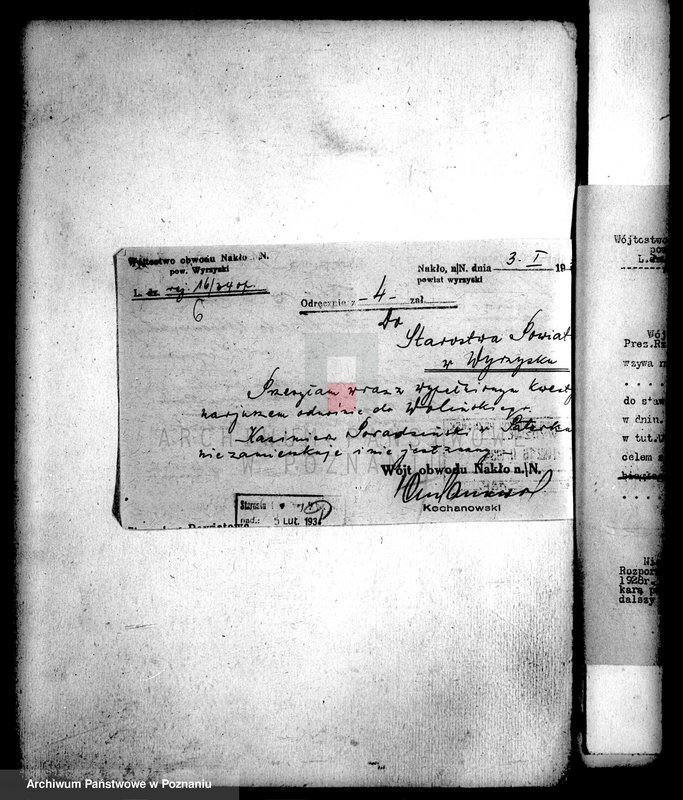 Wójtostwo obwodu Nakło N.
pow. Wyrzyski
L. dz. rej. 16/34 of.
6
Nakło, n|N. dnia 3. I 19
powiat wyrzyski
Odręcznie z - 4 - zał.
Do
Starostwa Powiat
w Wyrzysku
Przesyłam wraz z wypełnionym kwest
narjuszem odnośnie do Wolińskiego.
Kazimierz Poradzinik w Paterku
niezamieszkuje i nie jest znany.
Wójt obwodu Nakło n.|N.
Kochanowski
pad.: 5 LUT. 193
Powiatowe
ARCHIWUM PAŃSTWOWE
W POZNANIU
Wójtostwo
pow
L.
Wój
Prez.Rz
wzywa n
do staw
w dnin.
w tut.U
celem z
Ni
Rozpor
1928r.
karą p
dalszy
Archiwum Państwowe w Poznaniu